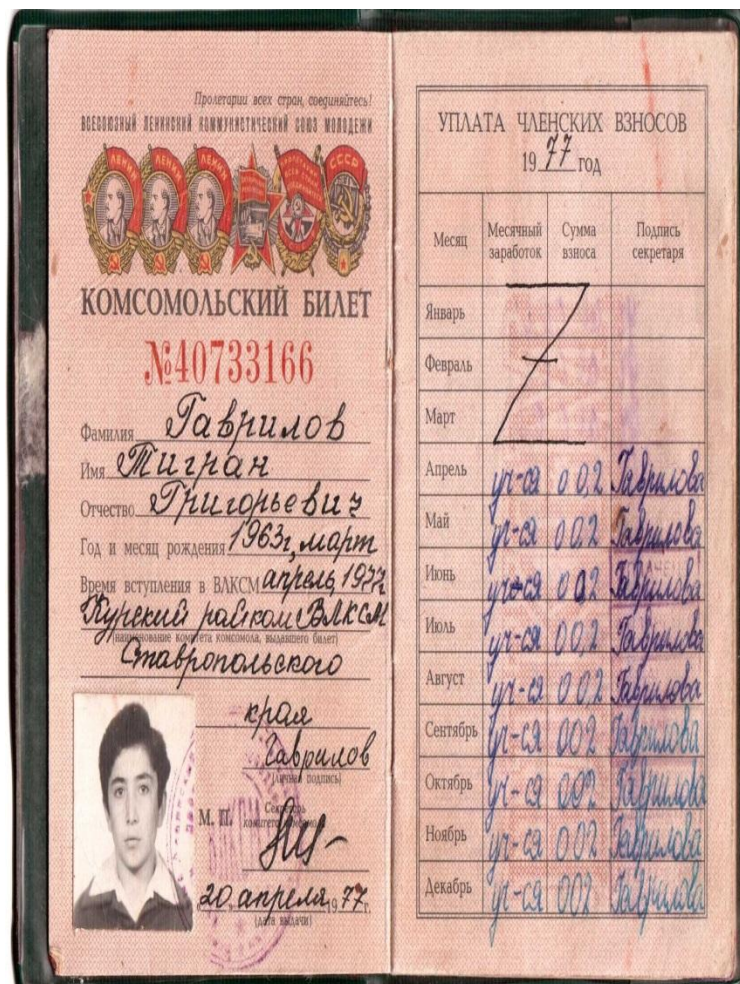 Пролетарии всех стран, соединяйтесь!
ВСЕСОЮЗНЫЙ ЛЕНИНСКИЙ КОММУНИСТИЧЕСКИЙ СОЮЗ МОЛОДЕЖИ
ЛЕНИН ЛЕНИН ЛЕНИН СССР
КОМСОМОЛЬСКИЙ БИЛЕТ
№40733166
Фамилия Гаврилов
Имя Тигран
Отчество Григорьевич
Год и месяц рождения 1963г, март
Время вступления в ВЛКСМ апрель, 1977г
Курский райком ВЛКСМ
(наименование комитета комсомола, выдавшего билет)
Ставропольского
края
Гаврилов
(личная подпись)
М. П. Секретарь
комитета комсомола
"20" апреля 1977г.
(дата выдачи)
УПЛАТА ЧЛЕНСКИХ ВЗНОСОВ
1977 год
Месяц Месячный заработок Сумма взноса Подпись секретаря
Январь
Февраль
Март
Апрель уч-ся 0 0,2 Гаврилова
Май уч-ся 0 0,2 Гаврилова
Июнь уч-ся 0 0,2 Гаврилова
Июль уч-ся 0 0,2 Гаврилова
Август уч-ся 0 0,2 Гаврилова
Сентябрь уч-ся 002 Гаврилова
Октябрь уч-ся 002 Гаврилова
Ноябрь уч-ся 002 Гаврилова
Декабрь уч-ся 002 Гаврилова